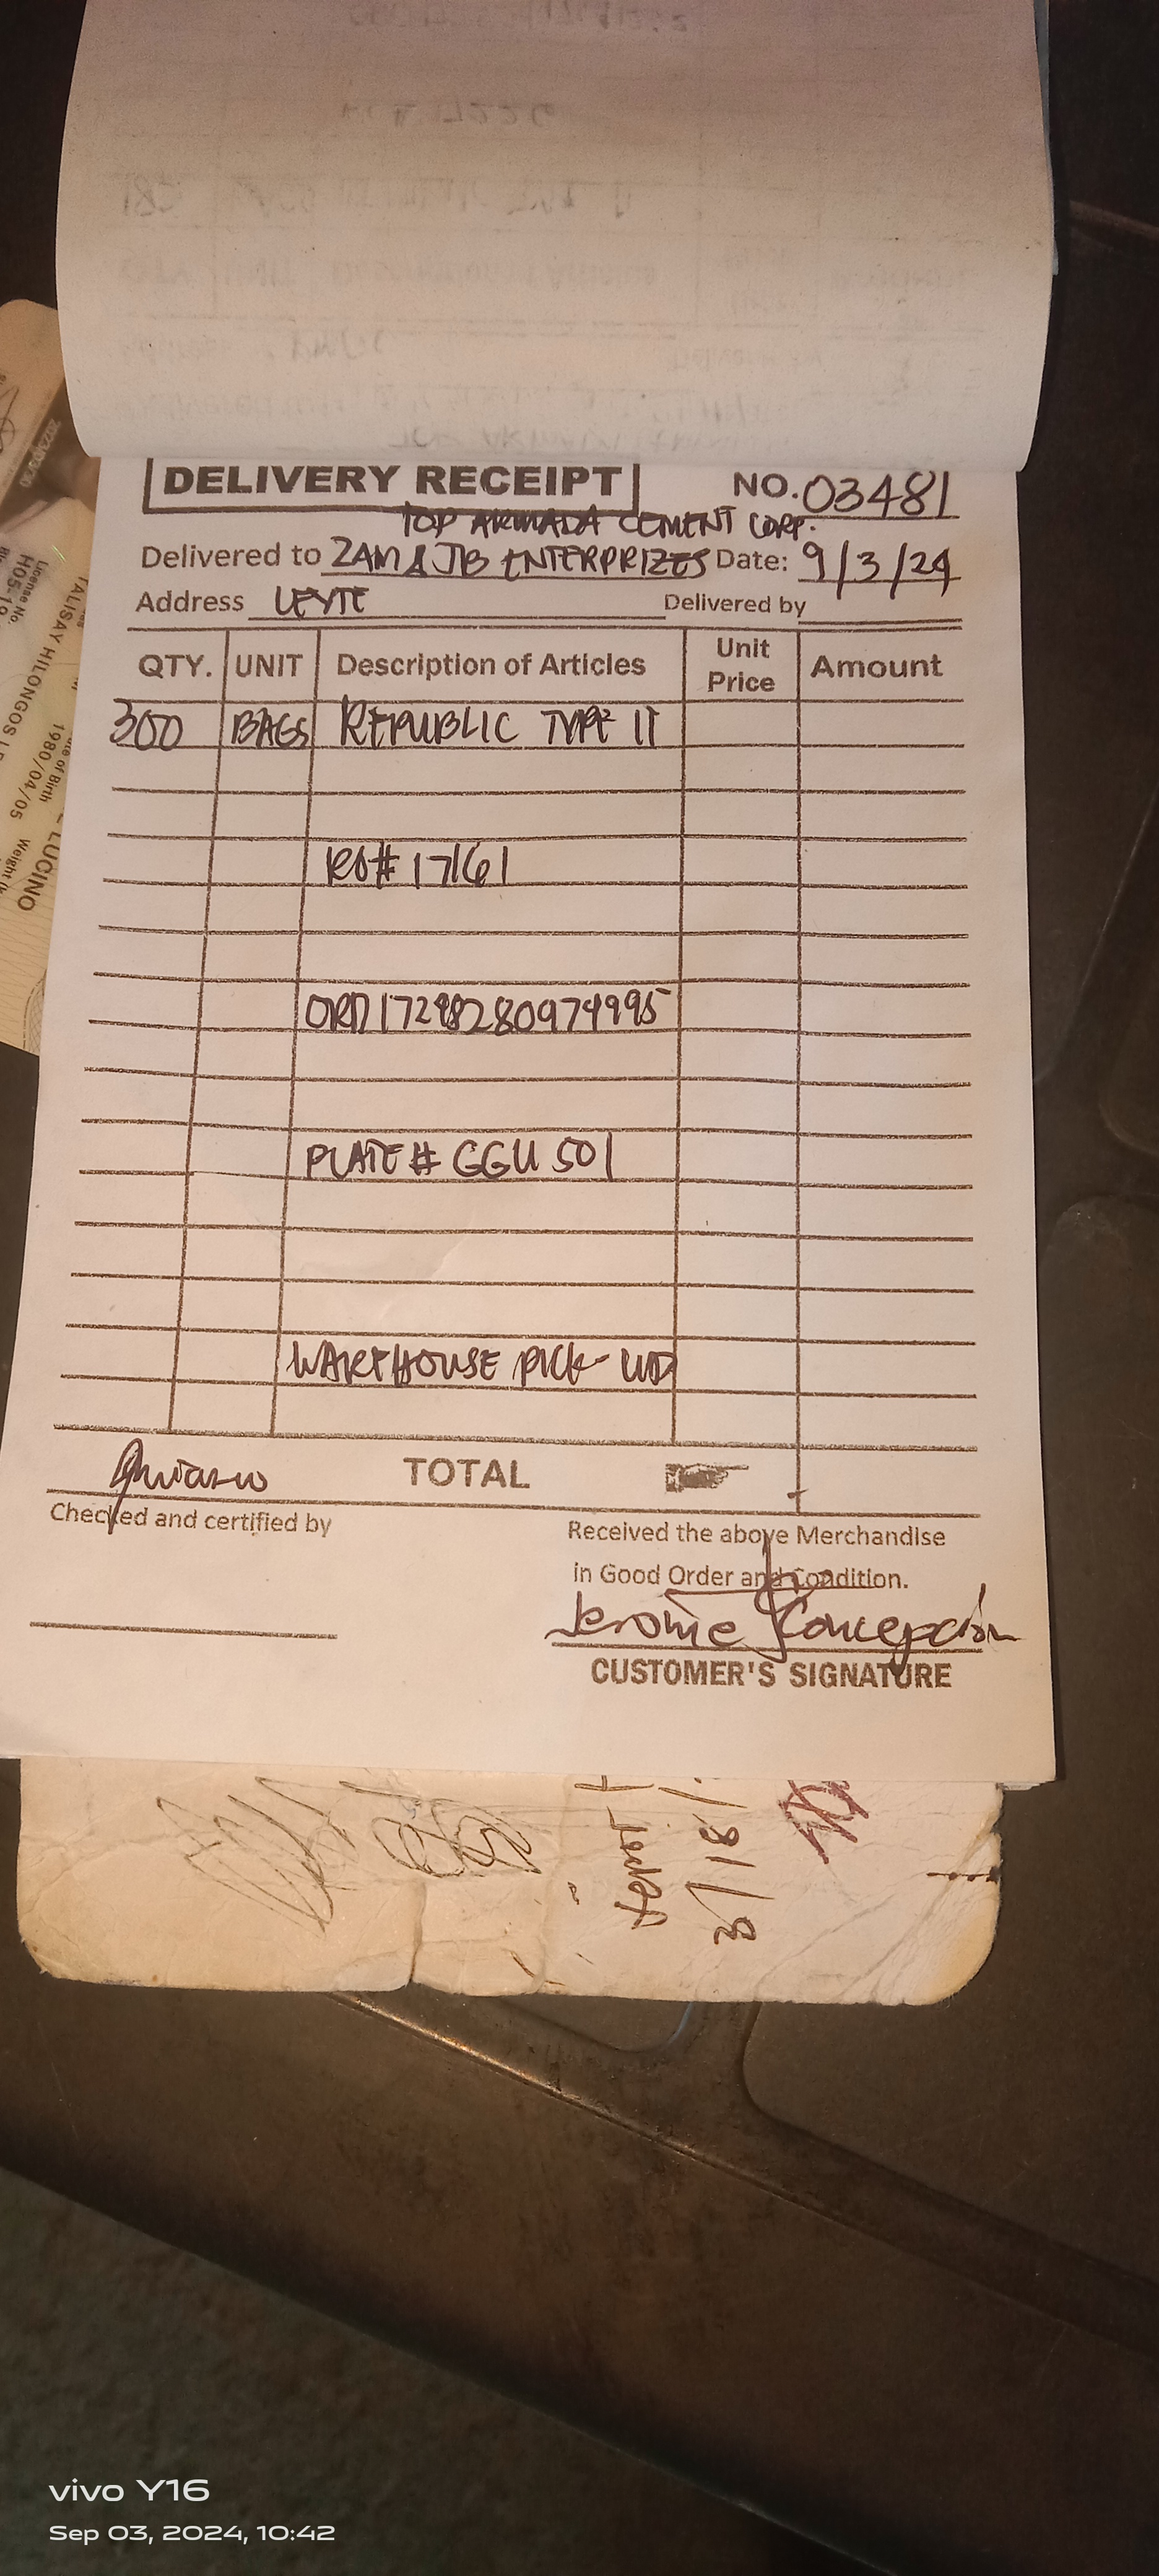 DELIVERY RECEIPT NO. 03481
TOP ARMADA CEMENT CORP.
Delivered to ZAM & JB ENTERPRIZES Date: 9/3/24
Address LEYTE Delivered by
QTY. UNIT Description of Articles Unit Price Amount
300 BAGS REPUBLIC TYPE 1T
RO# 17161
ORD17298280974995
PLATE # GGU 501
WAREHOUSE PICK-UP
TOTAL
Checked and certified by
Received the above Merchandise
in Good Order and Condition.
Jerome Concepcion
CUSTOMER'S SIGNATURE
License No.
H05-19
TALISAY HILONGOS
1980/04/05
Weight
LUCINO
3/18/
vivo Y16
Sep 03, 2024, 10:42